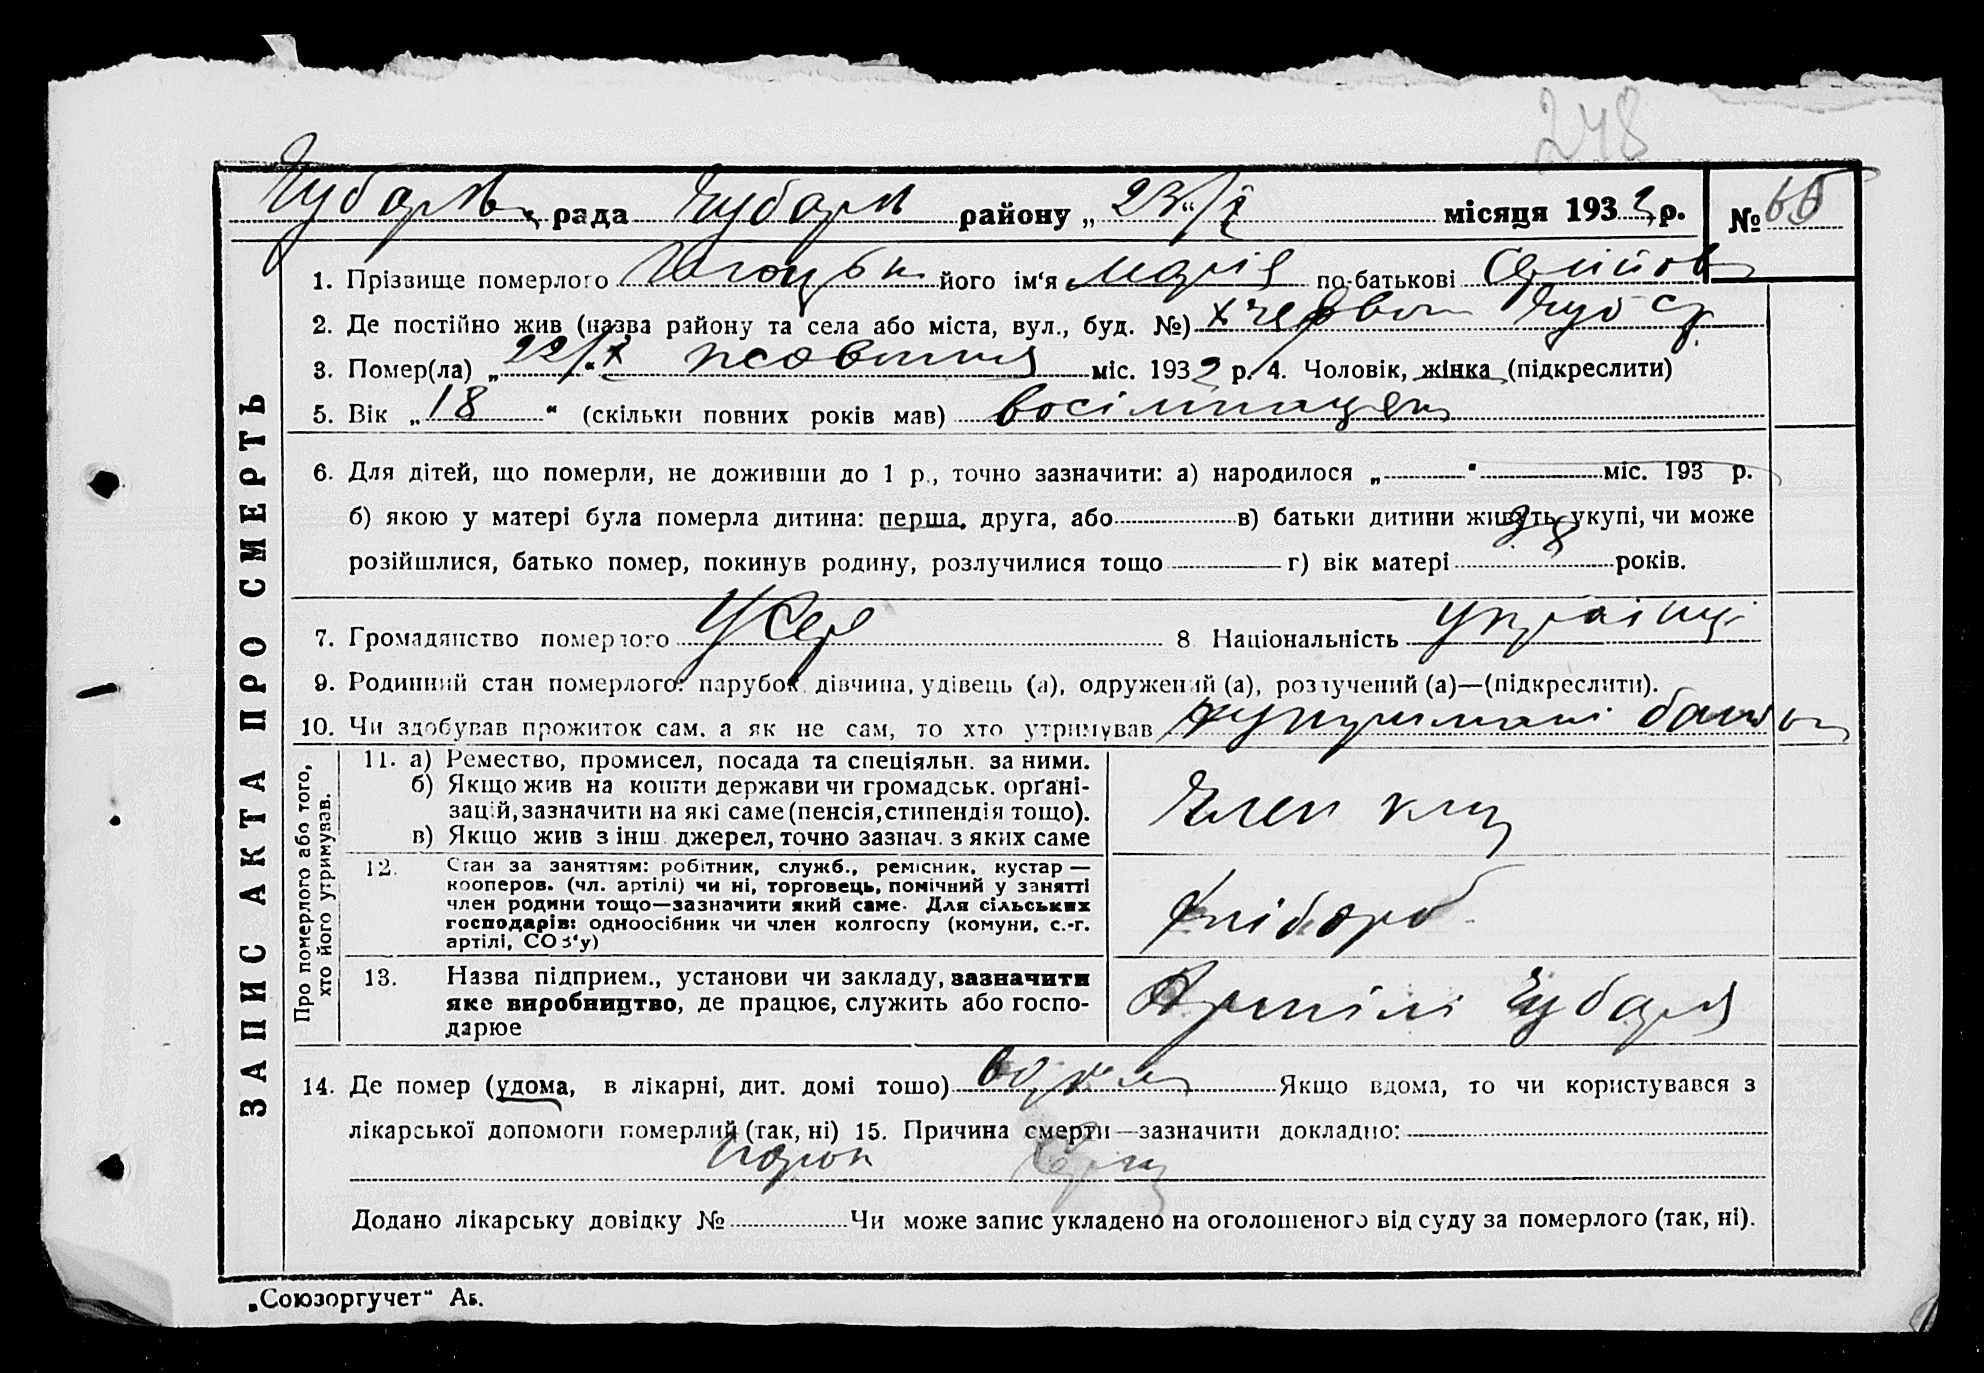 248
Чубарів. рада Чубарів району „ 23 “ / X місяця 1932 р. № 65
1. Прізвище померлого його ім‘я Марія по-батькові
2. Де постійно жив (назва району та села або міста, вул., буд. №) х Червон Чубар.
3. Помер(ла) „ 22/X “ жовтня міс. 1932 р. 4. Чоловік, жінка (підкреслити)
5. Вік „ 18 “ (скільки повних років мав) восімнацять
6. Для дітей, що померли, не доживши до 1 р., точно зазначити: а) народилося „ “ міс. 193 р.
б) якою у матері була померла дитина: перша, друга, або в) батьки дитини живуть укупі, чи може
розійшлися, батько помер, покинув родину, розлучилися тощо г) вік матері 38 років.
7. Громадянство померлого УСср 8 Національність українці
9. Родинний стан померлого: парубок, дівчина, удівець (а), одружений (а), розлучений (а)—(підкреслити).
10. Чи здобував прожиток сам, а як не сам, то хто утримував на утриманні батьк
ЗАПИС АКТА ПРО СМЕРТЬ
Про померлого або того,
хто його утримував.
11. а) Ремество, промисел, посада та спеціяльн. за ними.
б) Якщо жив на кошти держави чи громадськ. орґані-
зацій, зазначити на які саме (пенсія, стипендія тощо).
в) Якщо жив з інш. джерел, точно зазнач. з яких саме
Член
12. Стан за заняттям: робітник, служб., ремісник, кустар —
кооперов. (чл. артілі) чи ні, торговець, помічний у занятті
член родини тощо—зазначити який саме. Для сільських
господарів: одноосібник чи член колгоспу (комуни, с.-г.
артілі, СОЗ‘у)
Хлібороб
13. Назва підприєм., установи чи закладу, зазначити
яке виробництво, де працює, служить або госпо-
дарює
Артілі Чубаря
14. Де помер (удома, в лікарні, дит. домі тощо) Якщо вдома, то чи користувався з
лікарської допомоги померлий (так, ні) 15. Причина смерти—зазначити докладно:
Додано лікарську довідку № Чи може запис укладено на оголошеного від суду за померлого (так, ні).
„Союзоргучет“ Аб.